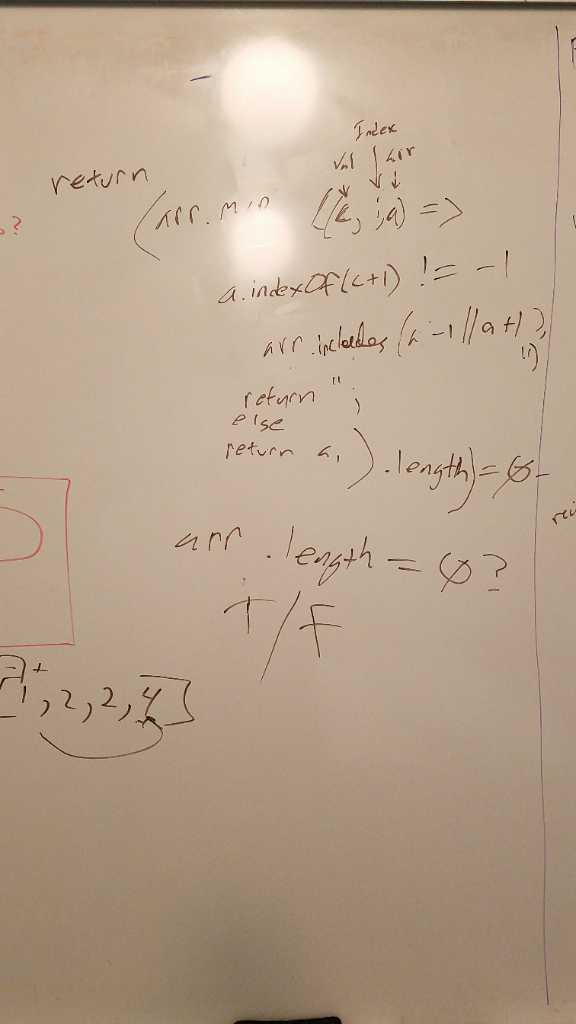 Index
val arr
return
(arr.min ((c, i, a) =>
a.indexOf(c+1) != -1
arr.includes (a-1||a+1),
'')
return '';
else
return a, ).length)=0
arr.length = 0?
T/F
- +
[1,2,2,4]
?